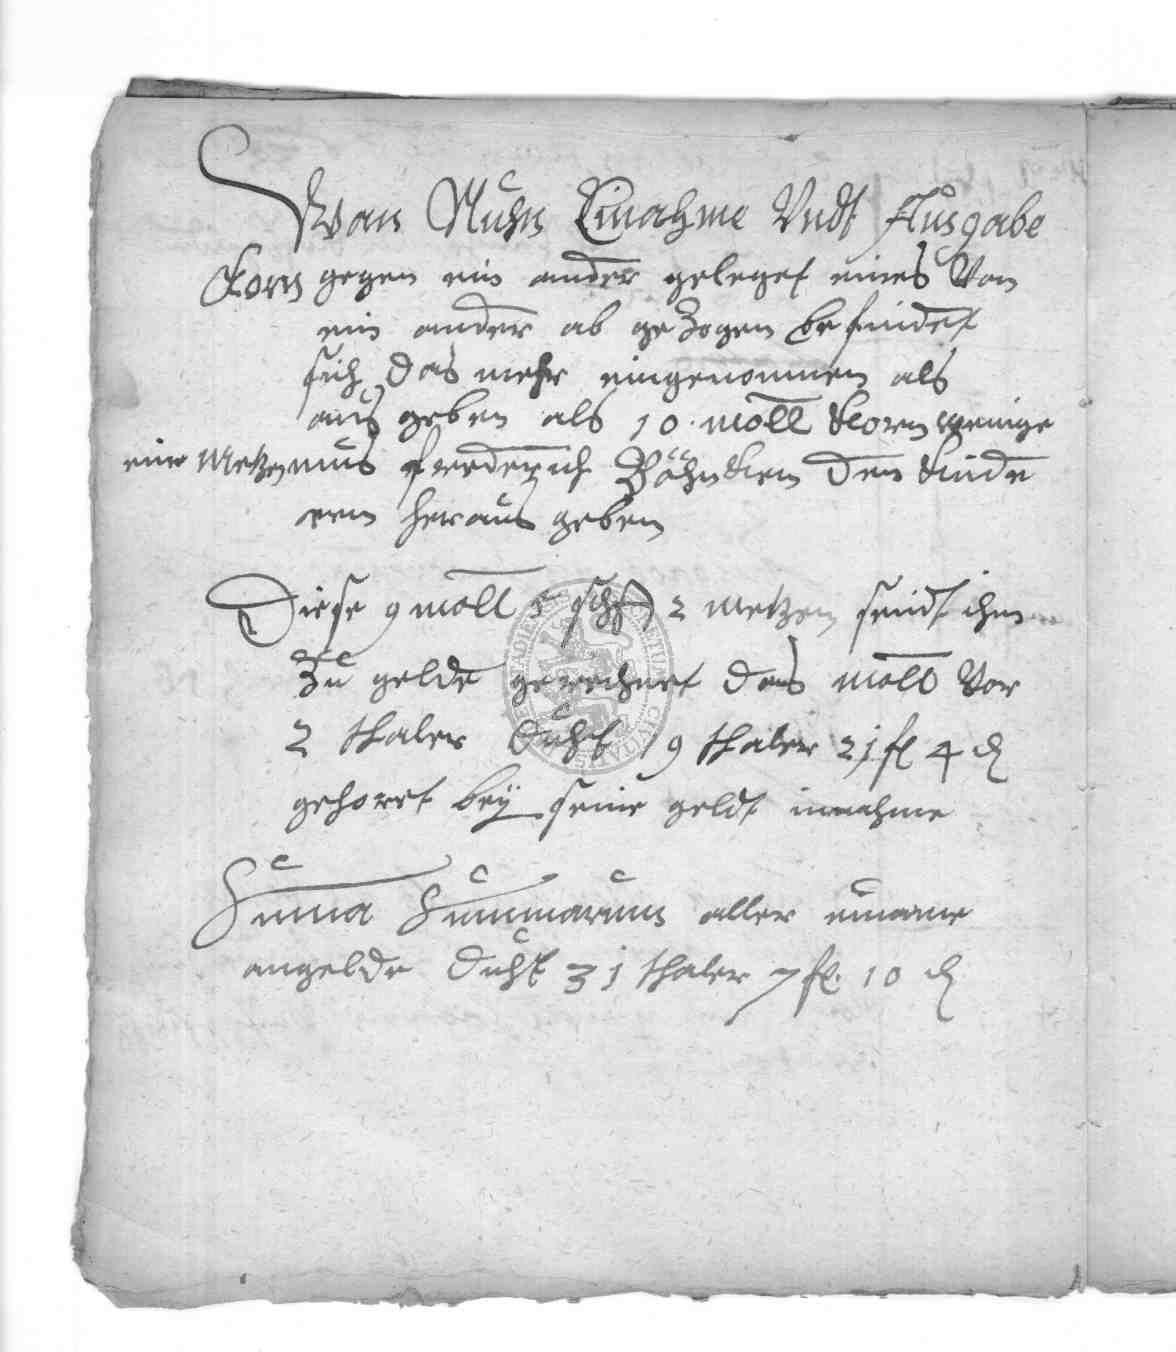 Wan Nuhn Einahme Vndt Ausgabe
Korn gegen ein ander geleget eines Von
ein ander ab gezogen befindet
sich das mehr eingenommen als
aus geben als 10. moll Korn wenige
eine Metzen mus frederich Böhncken den Kinde
ren heraus geben
Diese 9 moll 5 schff 2 Metzen seindt ihm
Zu gelde gerechnet das moll Vor
2 thaler thuht 19 thaler 21 fl 4 d
gehoret beÿ seine geldt innahme
Suma Summarum aller einame
angelde thuht 31 thaler 7 fl. 10 d